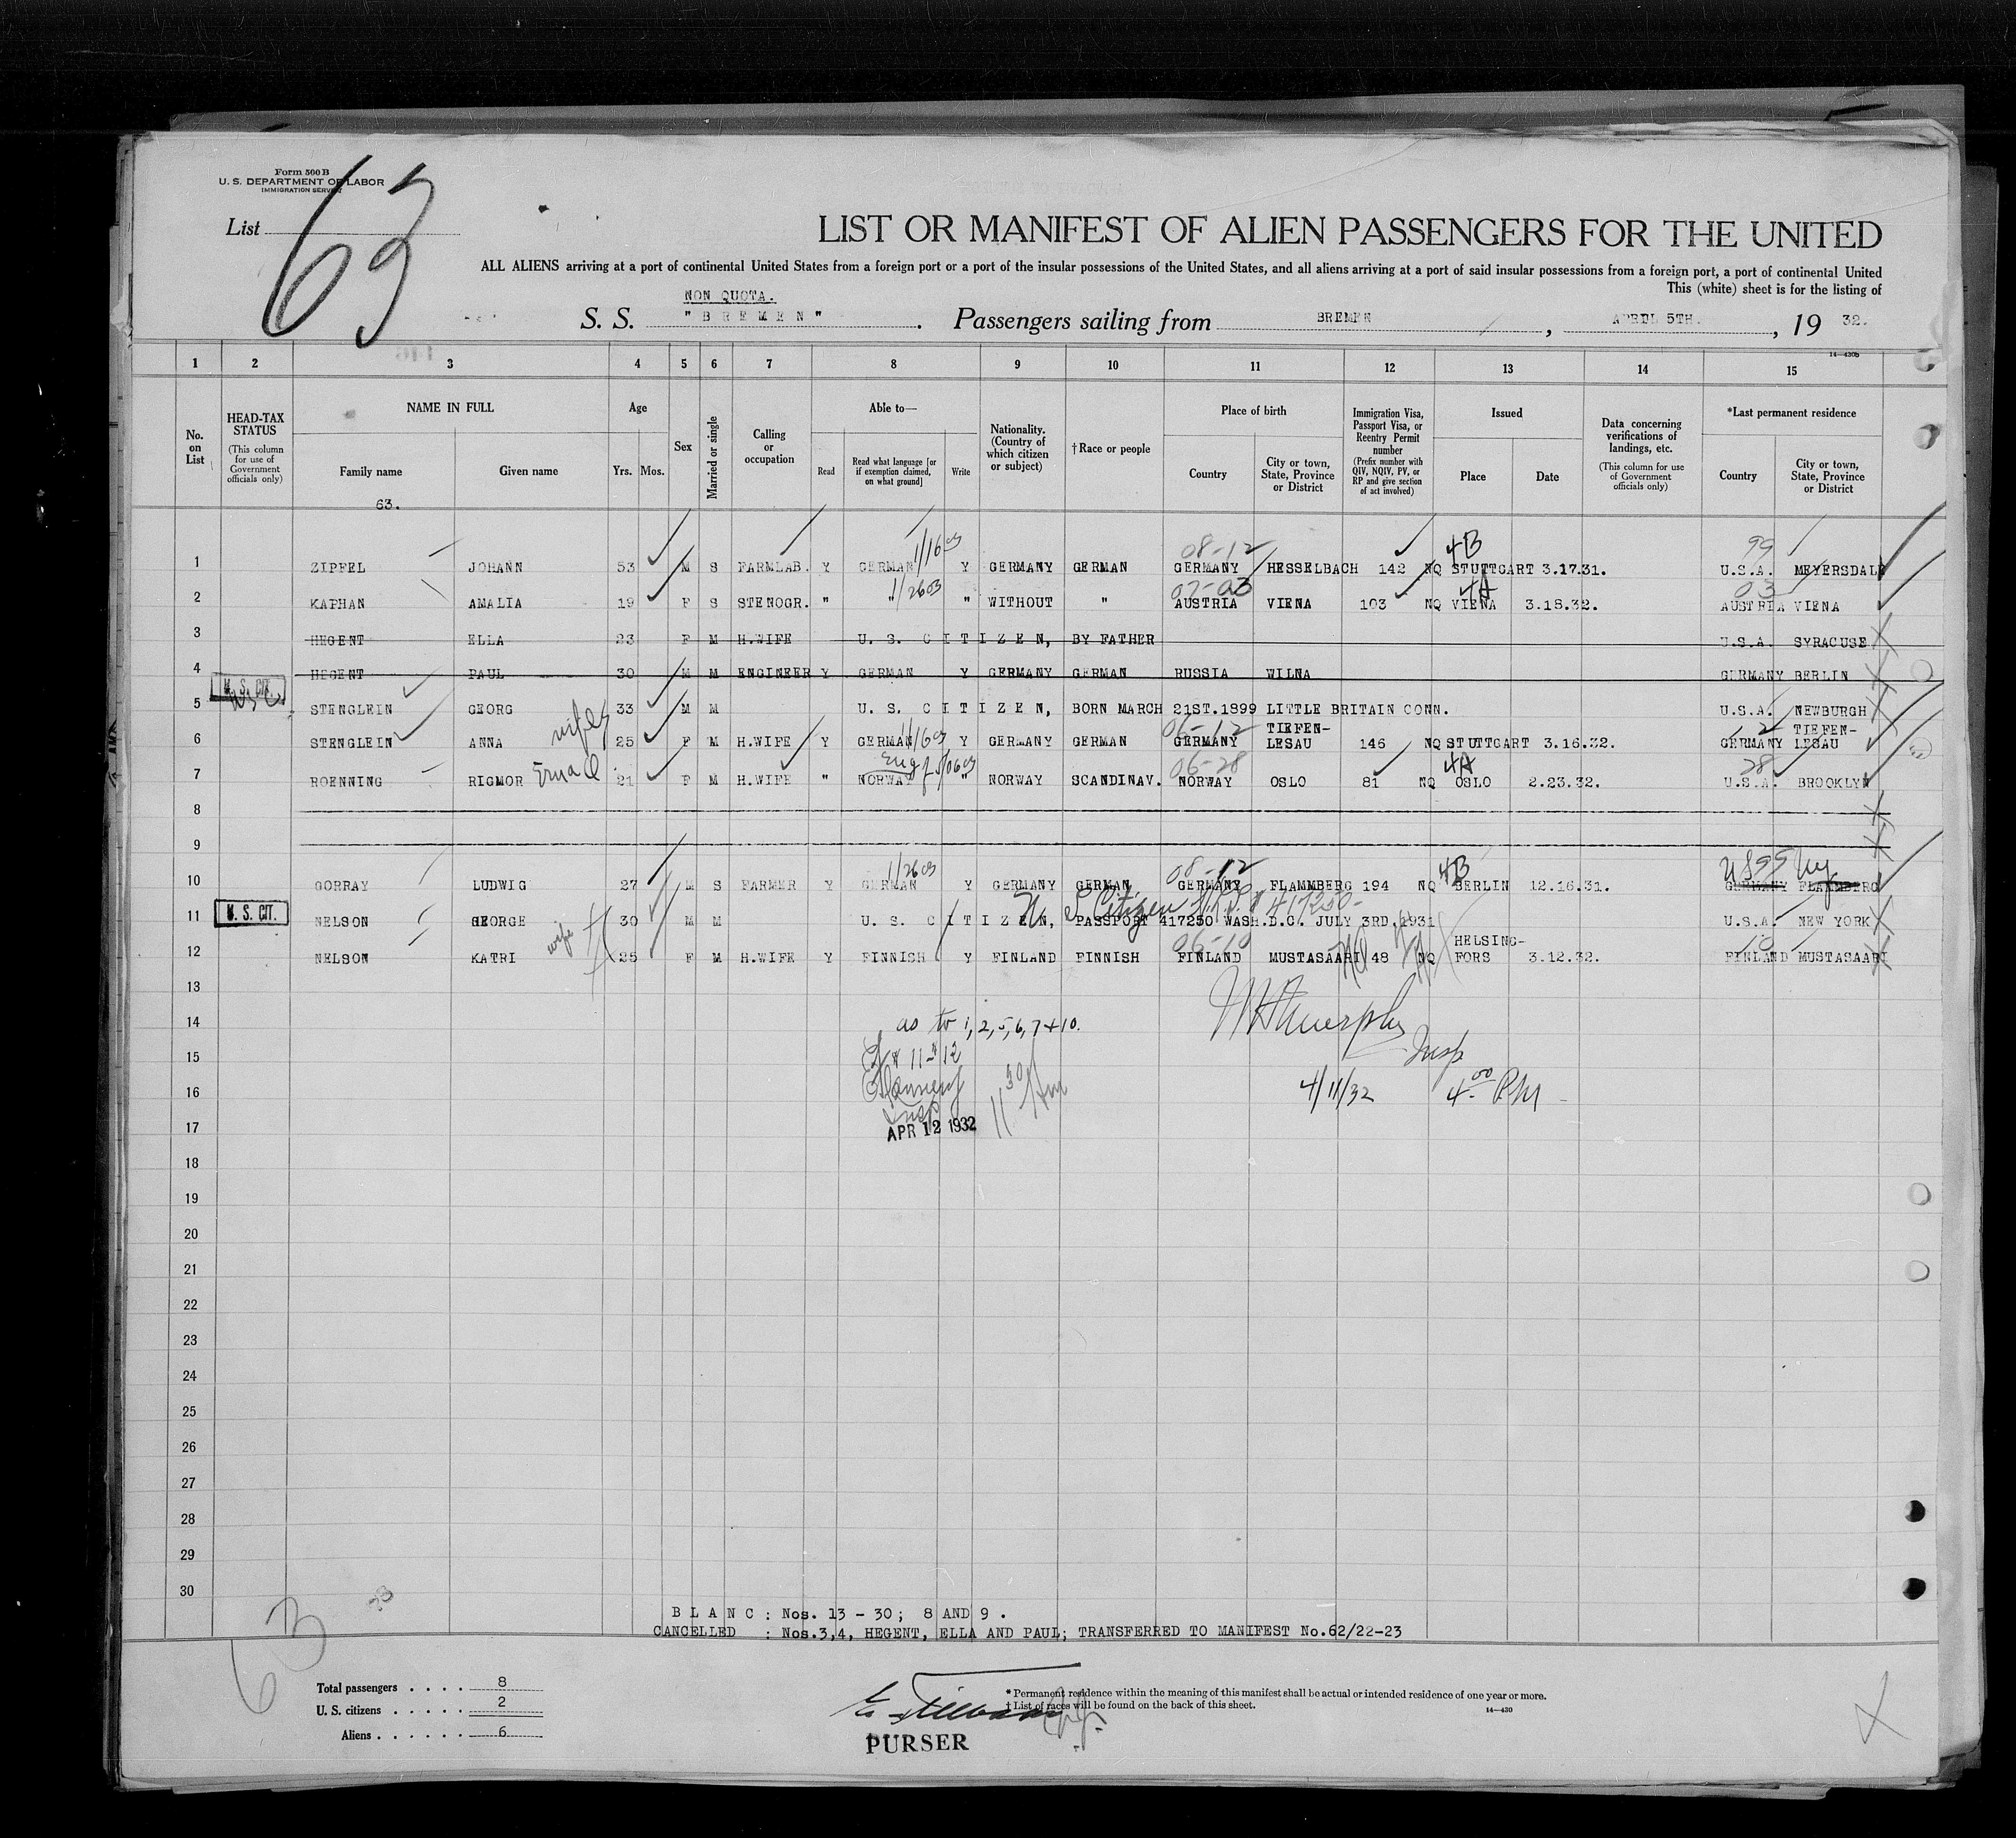 Form 500 B
U. S. DEPARTMENT OF LABOR
IMMIGRATION SERVICE
List 63
LIST OR MANIFEST OF ALIEN PASSENGERS FOR THE UNITED
ALL ALIENS arriving at a port of continental United States from a foreign port or a port of the insular possessions of the United States, and all aliens arriving at a port of said insular possessions from a foreign port, a port of continental United
This (white) sheet is for the listing of
NON QUOTA.
S. S. " B R E M E N " . Passengers sailing from BREMEN , APRIL 5TH. , 19 32.
14—430b
1 2 3 4 5 6 7 8 9 10 11 12 13 14 15
No. on List
HEAD-TAX STATUS (This column for use of Government officials only)
NAME IN FULL Family name Given name
63.
Age Yrs. Mos.
Sex
Married or single
Calling or occupation
Able to— Read Read what language [or if exemption claimed, on what ground] Write
Nationality. (Country of which citizen or subject)
† Race or people
Place of birth Country City or town, State, Province or District
Immigration Visa, Passport Visa, or Reentry Permit number (Prefix number with QIV, NQIV, PV, or RP and give section of act involved)
Issued Place Date
Data concerning verifications of landings, etc. (This column for use of Government officials only)
*Last permanent residence Country City or town, State, Province or District
1/16 03 08-12 4B 99
1 ZIPFEL JOHANN 53 M S FARMLAB. Y GERMAN Y GERMANY GERMAN GERMANY HESSELBACH 142 NQ STUTTGART 3.17.31. U.S.A. MEYERSDALE
1/26 03 07-03 4A 03
2 KAPHAN AMALIA 19 F S STENOGR. " " " WITHOUT " AUSTRIA VIENA 103 NQ VIENA 3.18.32. AUSTRIA VIENA
3 HEGENT ELLA 23 F M H.WIFE U. S. C I T I Z E N, BY FATHER U.S.A. SYRACUSE
4 HEGENT PAUL 30 M M ENGINEER Y GERMAN Y GERMANY GERMAN RUSSIA WILNA GERMANY BERLIN
U. S. CIT.
5 STENGLEIN GEORG 33 M M U. S. C I T I Z E N, BORN MARCH 21ST.1899 LITTLE BRITAIN CONN. U.S.A. NEWBURGH
wife 1/16 03 06-12 12
6 STENGLEIN ANNA 25 F M H.WIFE Y GERMAN Y GERMANY GERMAN GERMANY TIEFEN-LESAU 146 NQ STUTTGART 3.16.32. GERMANY TIEFEN-LESAU
Erna Eng 06-28 4A 28
7 ROENNING RIGMOR 21 F M H.WIFE " NORWAY " NORWAY SCANDINAV. NORWAY OSLO 81 NQ OSLO 2.23.32. U.S.A. BROOKLYN
8
9
1/26 03 08-12 4B US 99 Ny
10 GORRAY LUDWIG 27 M S FARMER Y GERMAN Y GERMANY GERMAN. GERMANY FLAMMBERG 194 NQ BERLIN 12.16.31. GERMANY FLAMMBERG
U S Citizen 417250
U. S. CIT.
11 NELSON GEORGE 30 M M U. S. C I T I Z E N, PASSPORT 417250 WASH.D.C. JULY 3RD.1931 U.S.A. NEW YORK
wife 06-10 10
12 NELSON KATRI 25 F M H.WIFE Y FINNISH Y FINLAND FINNISH FINLAND MUSTASAARI 48 NQ HELSING-FORS 3.12.32. FINLAND MUSTASAARI
13
14 as to 1, 2, 5, 6, 7 + 10.
Murphy
Insp
15 11 + 12
16 4/11/32 4 00 PM
11 30 Am
Insp
17 APR 12 1932
18
19
20
21
22
23
24
25
26
27
28
29
30
B L A N C : Nos. 13 - 30; 8 AND 9 .
CANCELLED : Nos.3,4, HEGENT, ELLA AND PAUL; TRANSFERRED TO MANIFEST No.62/22-23
63
Total passengers . . . . 8
U. S. citizens . . . . . 2
Aliens . . . . . . 6
* Permanent residence within the meaning of this manifest shall be actual or intended residence of one year or more.
† List of races will be found on the back of this sheet.
14—430
PURSER